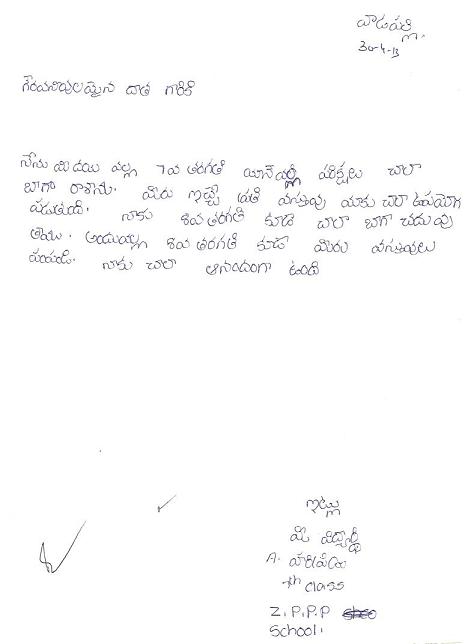 వాడపల్లి.
30-4-13
గౌరవనీయులమైన దాత గారికి
నేను మీ దయ వల్ల 7వ తరగతి యానివల్లి పరీక్షలు చాలా
బాగా రాశాను. మీరు ఇచ్చే ప్రతి వస్తువు మాకు చాలా ఉపయోగ
పడుతుంది. నాకు 8వ తరగతి కూడా చాలా బాగా చదువు
తాము. అందువల్ల 8వ తరగతి కూడా మీరు వస్తువులు
పంపండి. నాకు చాలా ఆనందంగా ఉంది
ఇట్లు
మీ విద్యార్థి
A.
7th class
Z.P.P.P
School.